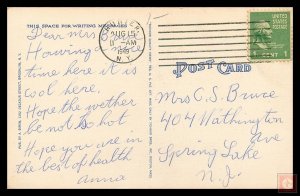 THIS SPACE FOR WRITING MESSAGES
Dear Mrs
Having a
time here it is
cool here.
Hope the wether
be not so hot
Hope you are in
the best of health
Anna
AUG 15
8 - AM
N.Y.
1 CENT 1
POST CARD
Mrs C. S. Bruce
404 Wathington
Ave
Spring Lake
N. J.